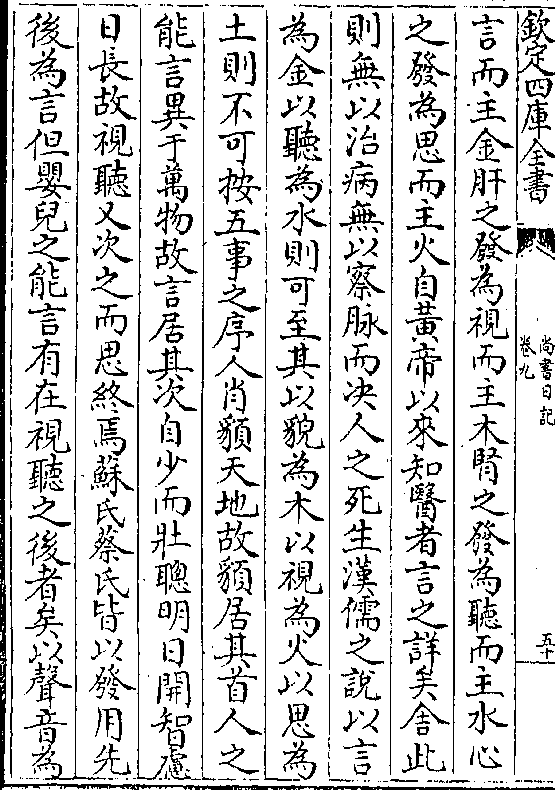 欽定四庫全書
尚書日記
卷九
五十
言而主金肝之發為視而主木腎之發為聽而主水心
之發為思而主火自黃帝以來知醫者言之詳矣舍此
則無以治病無以察脉而决人之死生漢儒之說以言
為金以聽為水則可至其以貌為木以視為火以思為
土則不可按五事之序人肖䫉天地故䫉居其首人之
能言異于萬物故言居其次自少而壯聰明日開智慮
日長故視聽又次之而思終焉蘇氏蔡氏皆以發用先
後為言但嬰兒之能言有在視聽之後者矣以聲音為